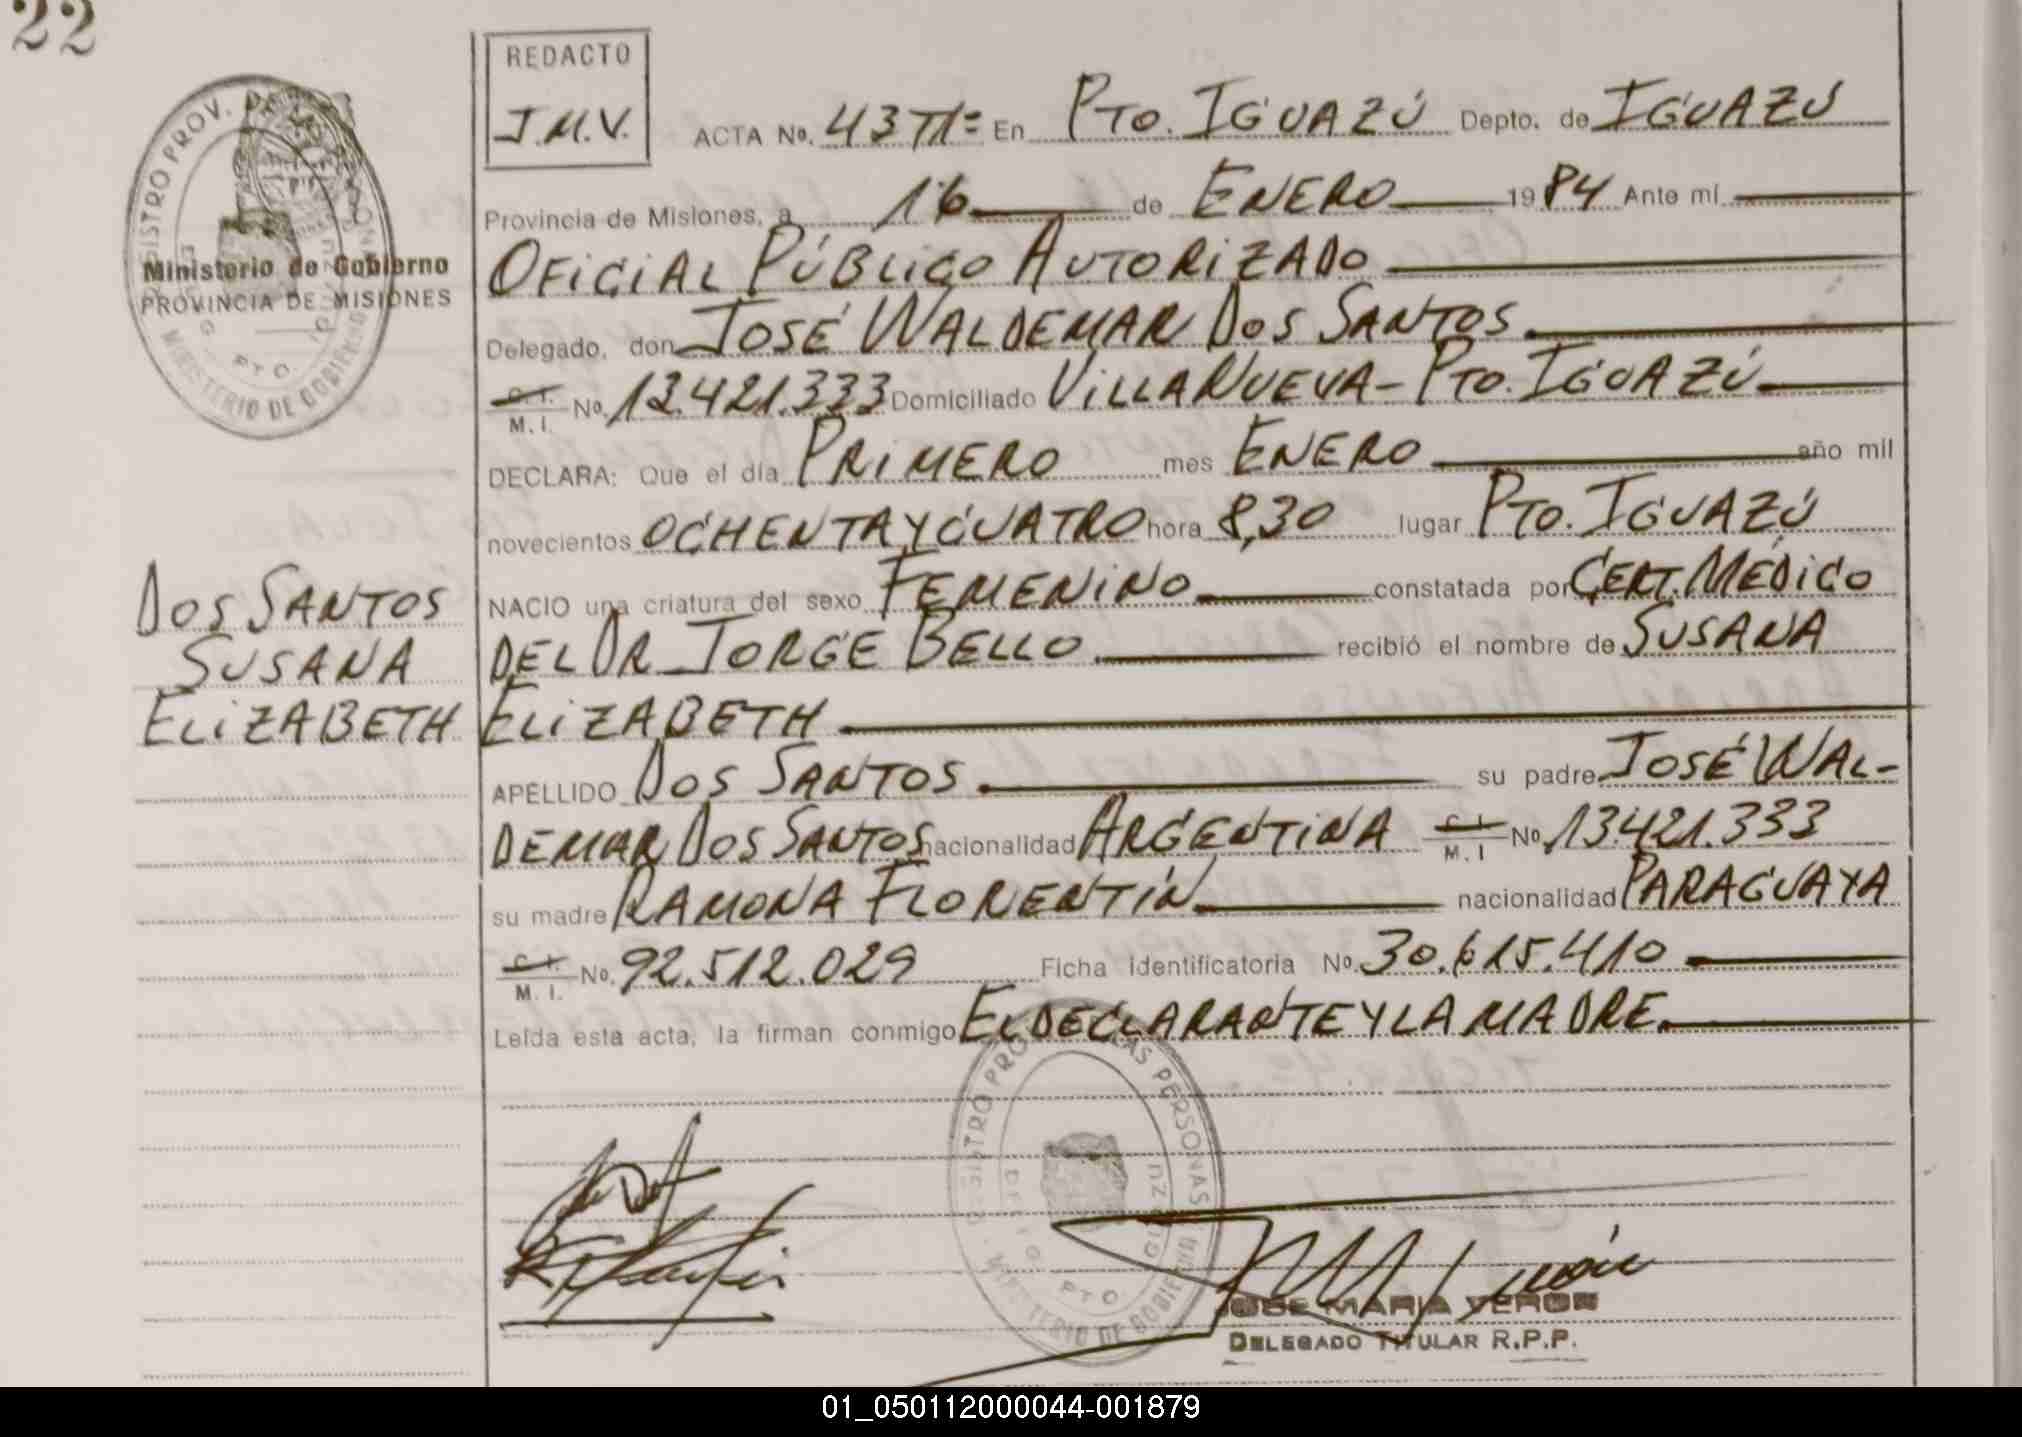 22
REDACTO
J.M.V.
ACTA No. 43 T1º En Pto. IGUAZÚ Depto. de IGUAZÚ
Provincia de Misiones, a 16 de ENERO 1984 Ante mí
OFICIAL PÚBLICO AUTORIZADO
Ministerio de Gobierno
PROVINCIA DE MISIONES
Delegado, don JOSÉ WALDEMAR DOS SANTOS.
C.I. M.I. No. 13.421.333 Domiciliado VILLA NUEVA - PTO. IGUAZÚ
DECLARA: Que el día PRIMERO mes ENERO año mil
novecientos OCHENTA Y CUATRO hora 8,30 lugar PTO. IGUAZÚ
NACIO una criatura del sexo FEMENINO constatada por CERT. MÉDICO
DEL DR JORGE BELLO. recibió el nombre de SUSANA
ELIZABETH
DOS SANTOS
SUSANA
ELIZABETH
APELLIDO DOS SANTOS. su padre JOSÉ WAL-
DEMAR DOS SANTOS nacionalidad ARGENTINA C.I. M.I No. 13.421.333
su madre RAMONA FLORENTÍN nacionalidad PARAGUAYA
C.I. M.I. No. 92.512.029 Ficha identificatoria No. 30.615.410
Leída esta acta, la firman conmigo EL DECLARANTE Y LA MADRE.
JOSE MARIA VERON
DELEGADO TITULAR R.P.P.
01_050112000044-001879